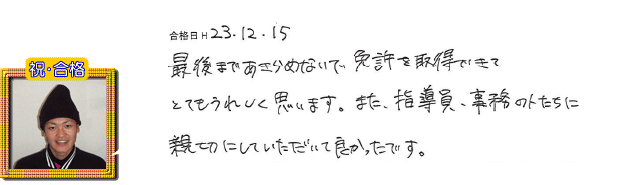 祝・合格
合格日 H 23.12.15
最後まであきらめないで免許を取得できて
とてもうれしく思います。また、指導員、事務の人たちに
親切にしていただいて良かったです。